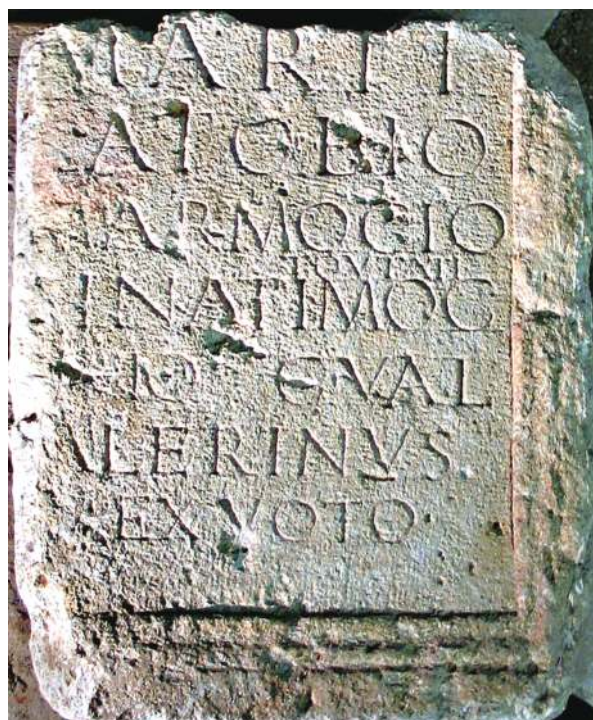 MARTI
LATOBIO
ARMOGIO
TOVTATI
INATI MOG
C·VAL
ALERINVS
EX VOTO